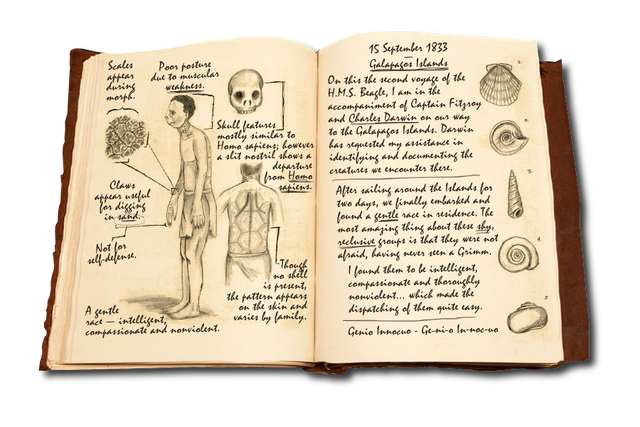 Scales
appear
during
morph.
Poor posture
due to muscular
weakness.
Skull features
mostly similar to
Homo sapiens; however
a slit nostril shows a
departure
from Homo
sapiens.
Claws
appear useful
for digging
in sand.
Not for
self-defense.
Though
no shell
is present,
the pattern appears
on the skin and
varies by family.
A gentle
race — intelligent,
compassionate and nonviolent.
15 September 1833
—
Galapagos Islands
On this the second voyage of the
H.M.S. Beagle, I am in the
accompaniment of Captain Fitzroy
and Charles Darwin on our way
to the Galapagos Islands. Darwin
has requested my assistance in
identifying and documenting the
creatures we encounter there.
After sailing around the Islands for
two days, we finally embarked and
found a gentle race in residence. The
most amazing thing about these shy,
reclusive groups is that they were not
afraid, having never seen a Grimm.
I found them to be intelligent,
compassionate and thoroughly
nonviolent... which made the
dispatching of them quite easy.
Genio Innocuo - Ge-ni-o In-noc-uo